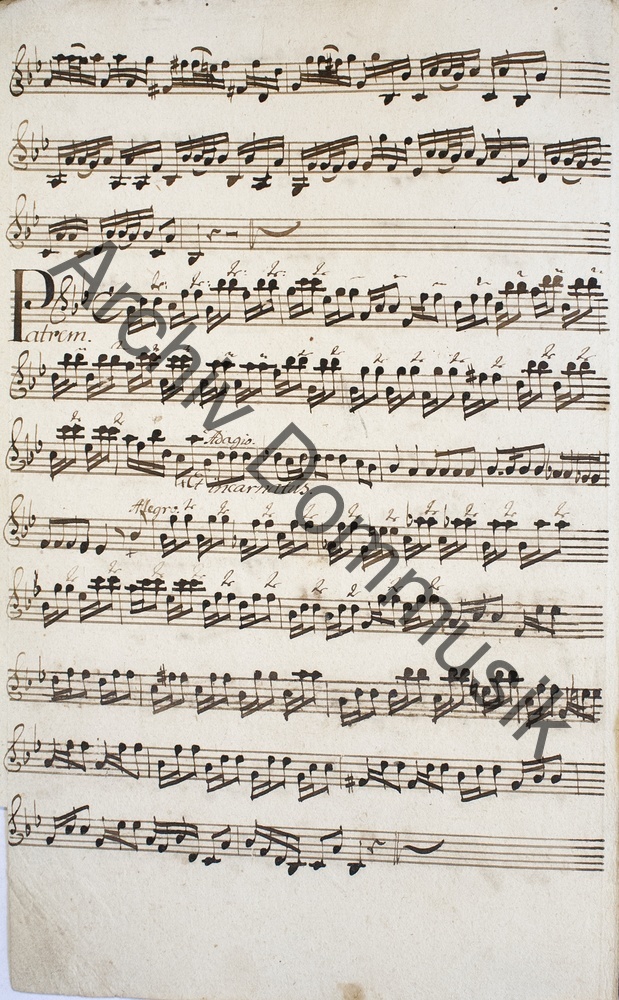 Patrem.
Adagio.
Et incarnatus.
Allegro.
Archiv Dommusik